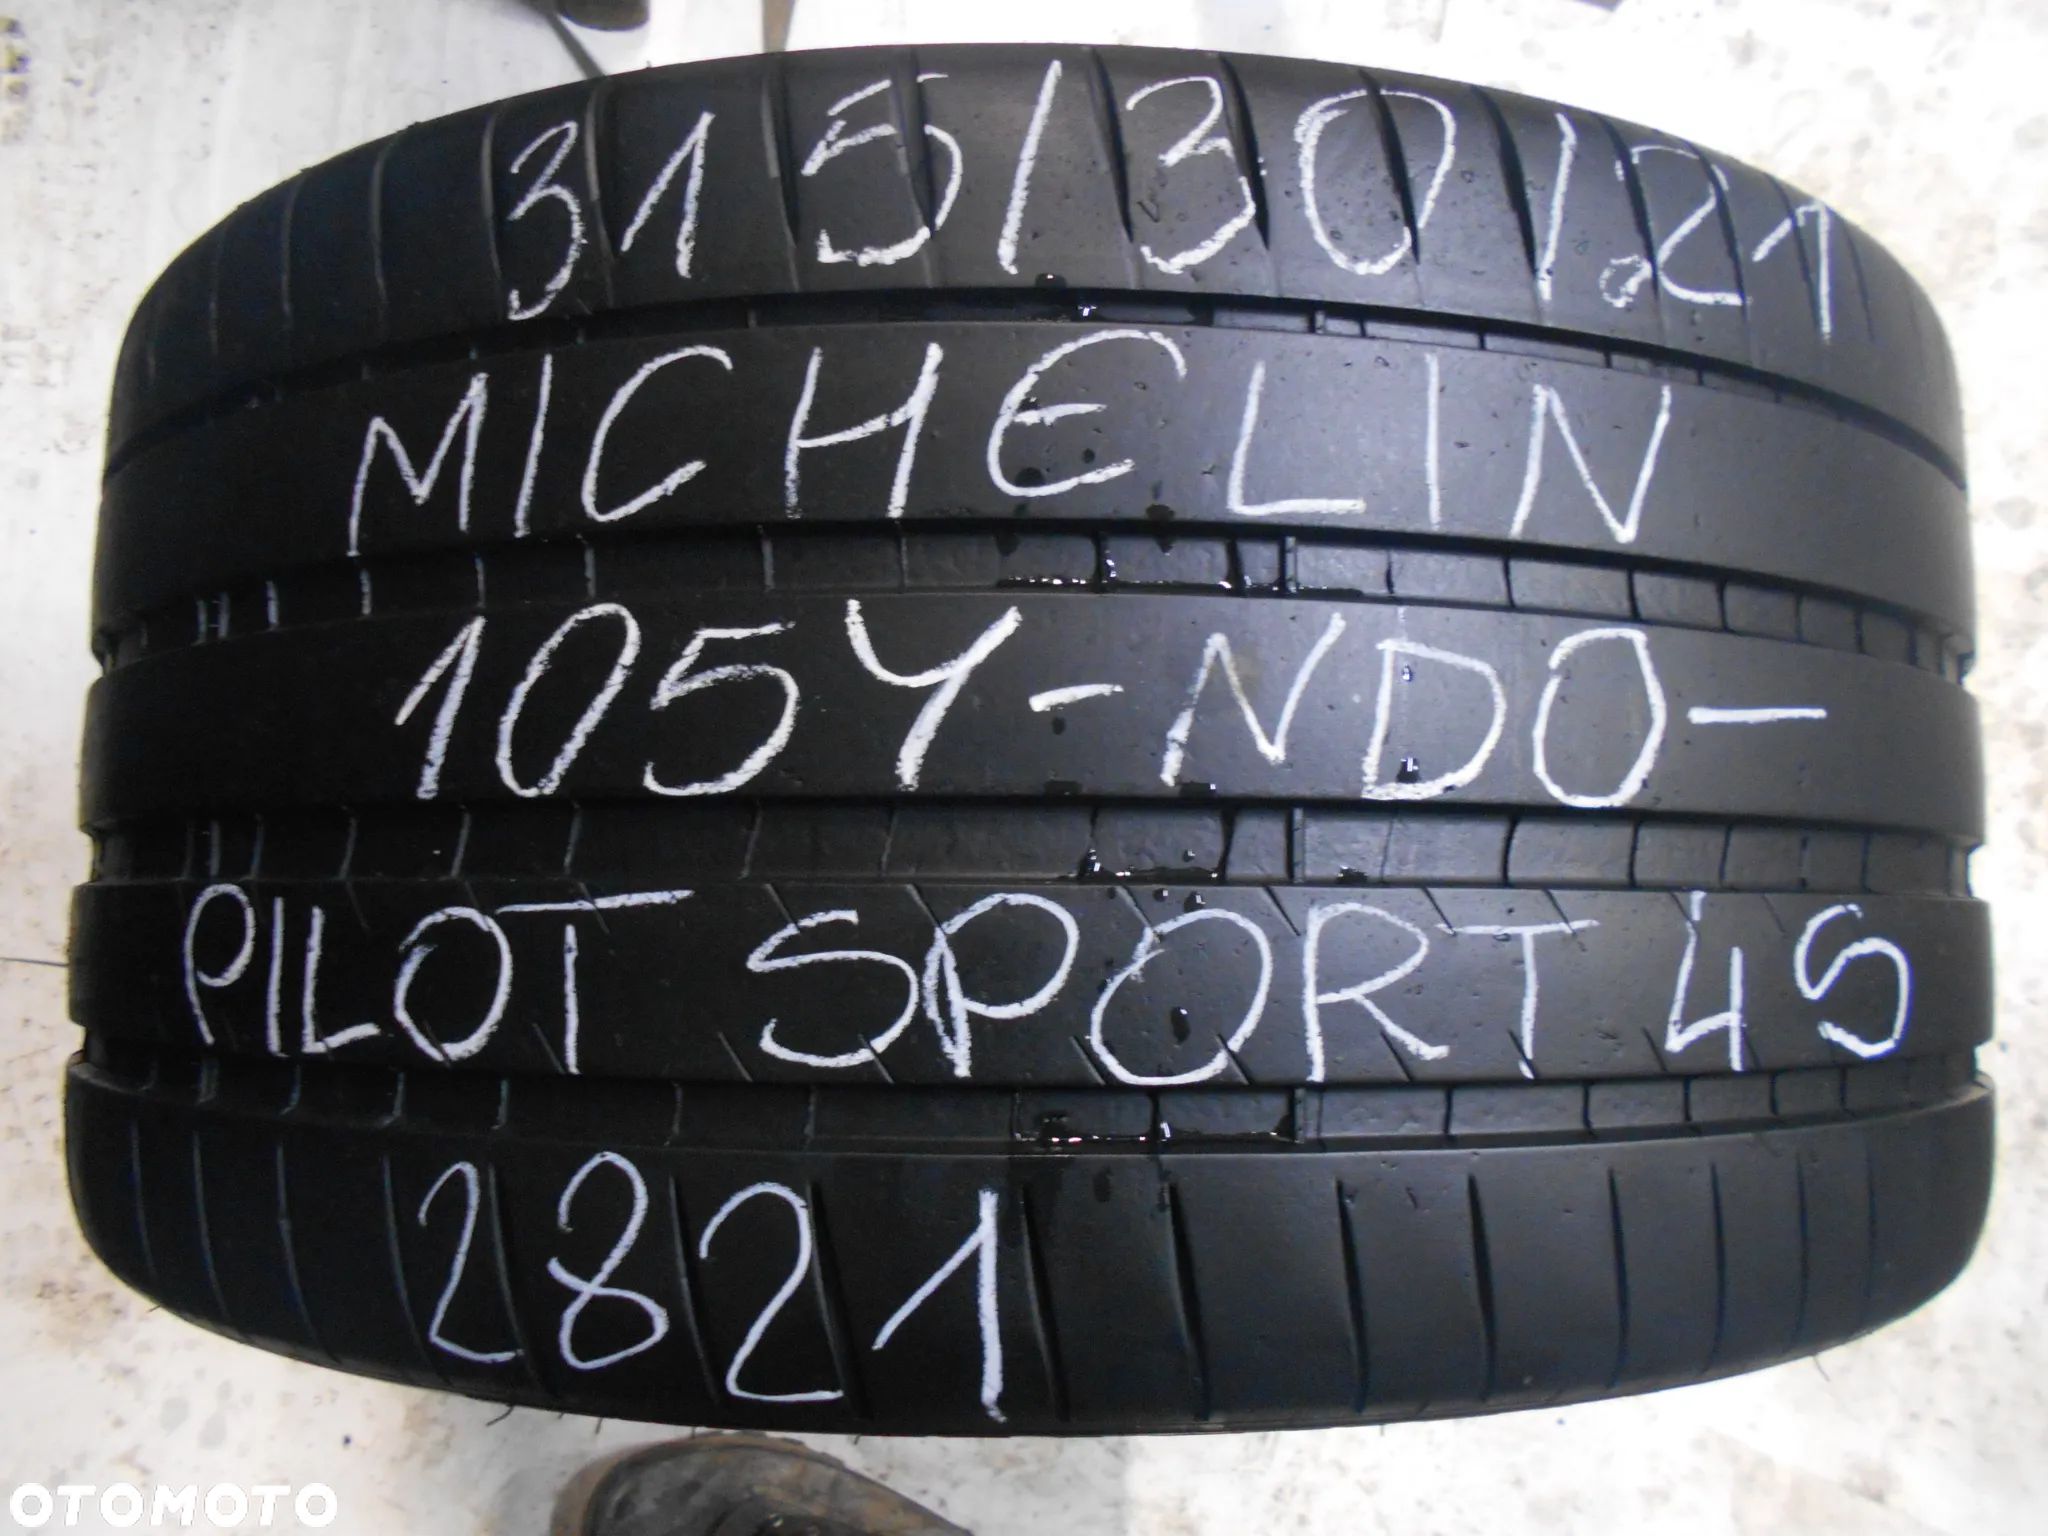 315/30/21
MICHELIN
105Y-NDO-
PILOT SPORT 4S
2821
OTOMOTO